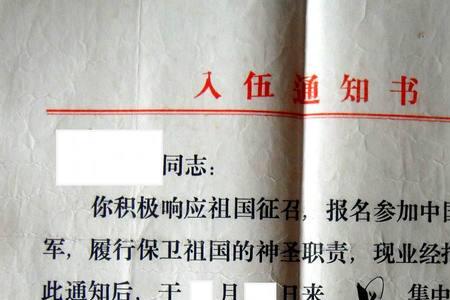 入伍通知书
同志：
你积极响应祖国征召，报名参加中国
军，履行保卫祖国的神圣职责，现业经
此通知后，于 月 日来 集中